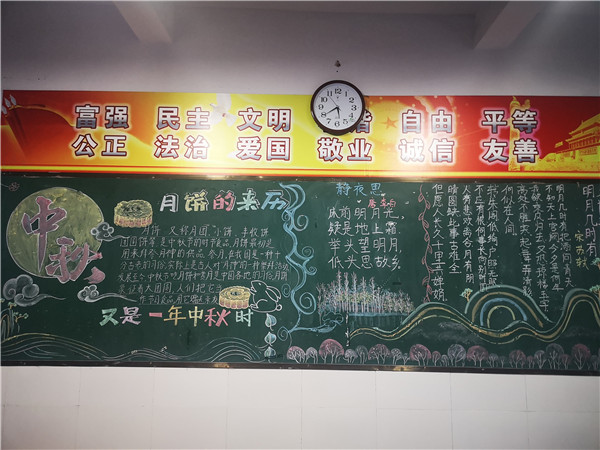 富强 民主 文明 谐 自由 平等
公正 法治 爱国 敬业 诚信 友善
中秋
月饼的来历
月饼 又称月团 小饼 丰收饼
团圆饼等 是中秋节的时节食品 月饼最初是
用来拜祭月神的供品
又是一年中秋时
静夜思
唐 李白
床前明月光,
疑是地上霜。
举头望明月,
低头思故乡。
明月几时有
宋 苏轼
明月几时有 把酒问青天
不知天上宫阙 今夕是何年
我欲乘风归去 又恐琼楼玉宇
高处不胜寒 起舞弄清影
何似在人间
转朱阁 低绮户 照无眠
不应有恨 何事长向别时圆
人有悲欢离合 月有
晴圆缺 此事古难全
但愿人长久 千里共婵娟